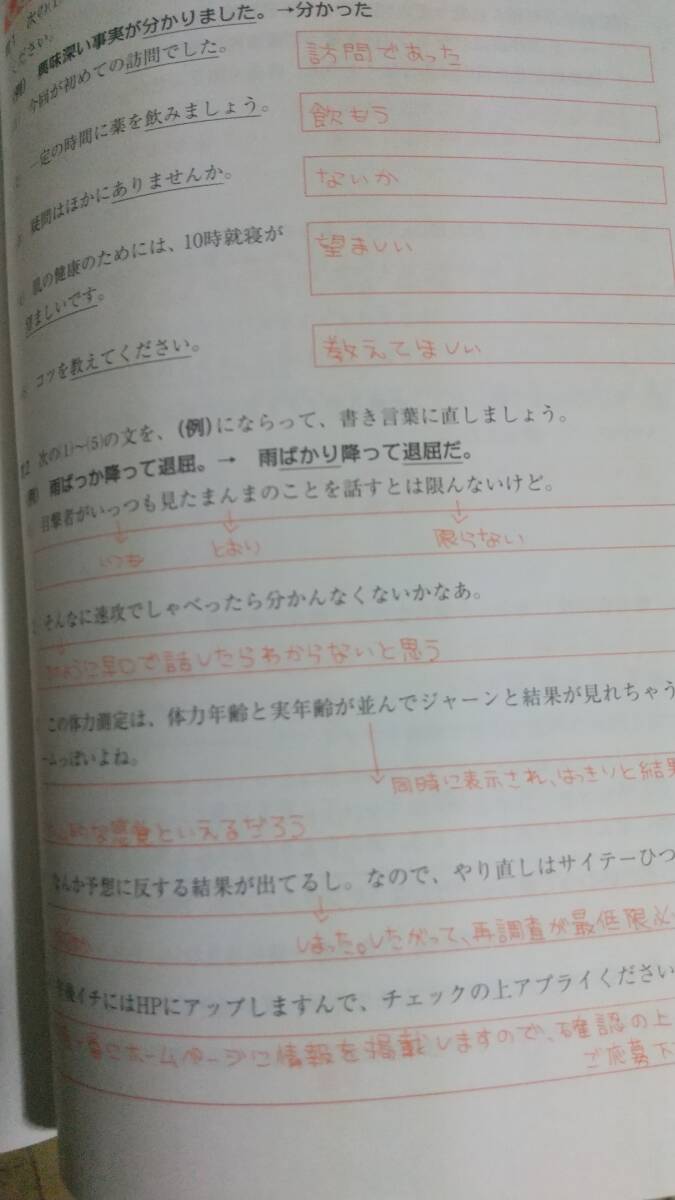 ください。
(例) 興味深い事実が分かりました。→分かった
今回が初めての訪問でした。 訪問であった
一定の時間に薬を飲みましょう。 飲もう
疑問はほかにありませんか。 ないか
肌の健康のためには、10時就寝が 望ましい
望ましいです。
コツを教えてください。 教えてほしい
2 次の(1)~(5)の文を、(例)にならって、書き言葉に直しましょう。
(例) 雨ばっか降って退屈。→ 雨ばかり降って退屈だ。
目撃者がいっつも見たまんまのことを話すとは限んないけど。
↓ ↓ ↓
いつも とおり 限らない
そんなに速攻でしゃべったら分かんなくないかなあ。
ように早口で話したらわからないと思う
この体力測定は、体力年齢と実年齢が並んでジャーンと結果が見れちゃう
ームっぽいよね。
→同時に表示され、はっきりと結果
的な感覚といえるだろう
なんか予想に反する結果が出てるし。なので、やり直しはサイテーひつ
↓
しまった。したがって、再調査が最低限必
イチにはHPにアップしますんで、チェックの上アプライください
ホームページに情報を掲載しますので、確認の上
ご応募下